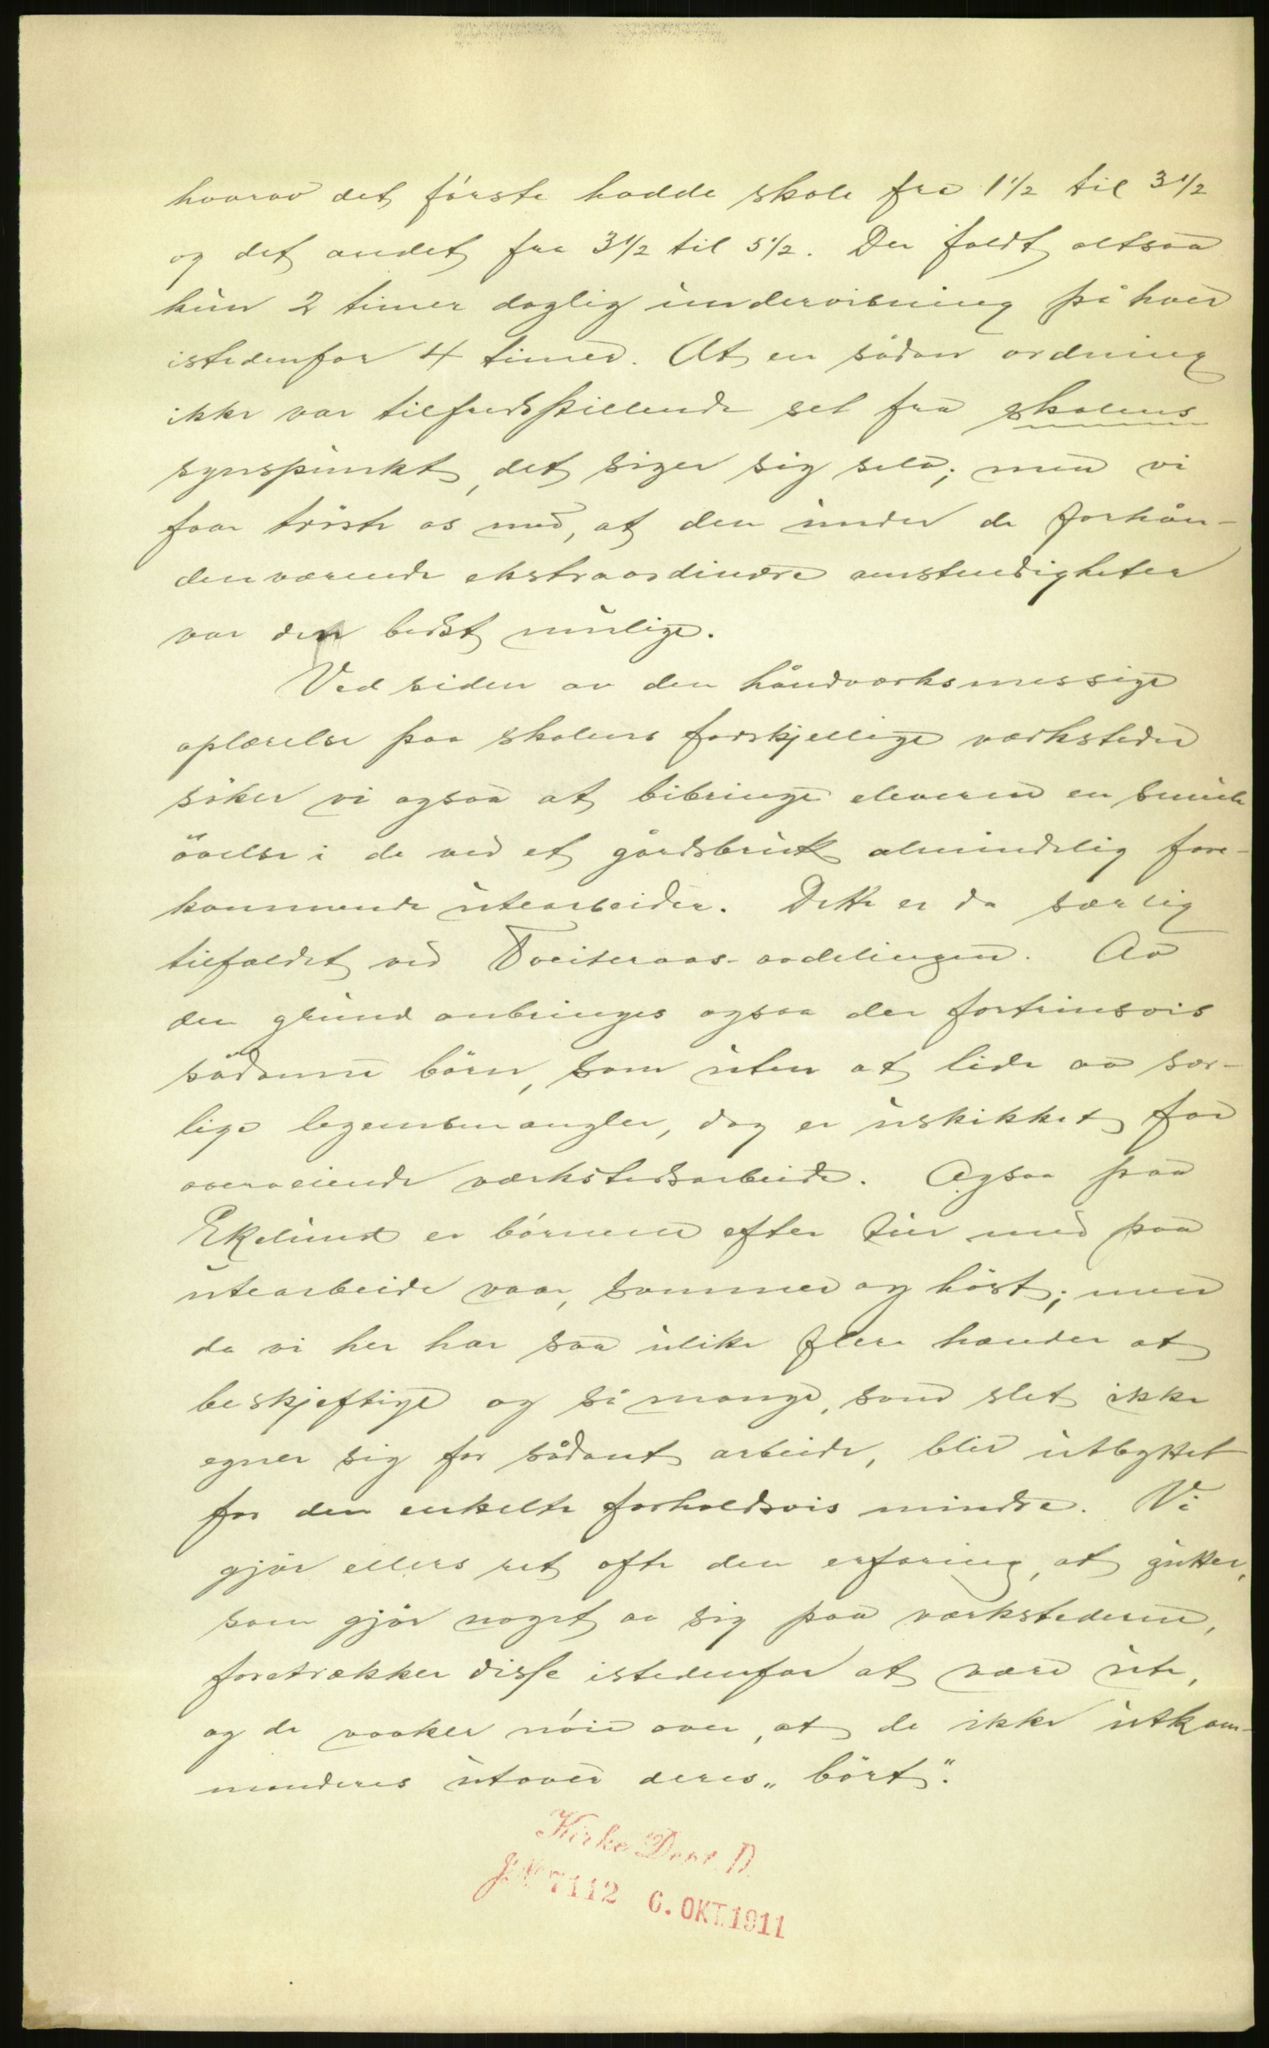 hvorav det første hadde skole fra 1½ til 3½
og det andet fra 3½ til 5½. Der faldt altsaa
kun 2 timer daglig undervisning på hver
istedenfor 4 timer. At en sådan ordning
ikke var tilfredsstillende set fra skolens
synspunkt, det siger sig selv; men vi
faar trøste os med, at den under de forhån-
denværende ekstraordinære omstendigheter
var den bedst mulige.
Ved siden av den håndverksmessige
oplærelse paa skolens forskjellige verksteder
søker vi ogsaa at bibringe eleverne en smule
øvelse i de ved et gårdsbruk almindelig fore-
kommende utearbeider. Dette er da særlig
tilfældet ved Tveiteraas-avdelingen. Av
den grund anbringes ogsaa der fortrinsvis
sådanne børn, som uten at lide av sær-
lige legemsmangler, dog er uskikket for
overveiende verkstedsarbeide. Ogsaa paa
Ekelund er børnene efter tur med paa
utearbeide vaar, sommer og høst; men
da vi her har saa ulike flere hænder at
beskjeftige og så mange, som slet ikke
egner sig for sådant arbeide, blir utbyttet
for den enkelte forholdsvis mindre. Vi
gjør ellers ret ofte den erfaring, at gutter,
som gjør noget av sig paa verkstederne,
foretrækker disse istedenfor at være ute,
og de vaaker nøie over, at de ikke utkom-
manderes utover deres "børt".
Kirke Dept. D.
J.N. 7112 6. OKT. 1911